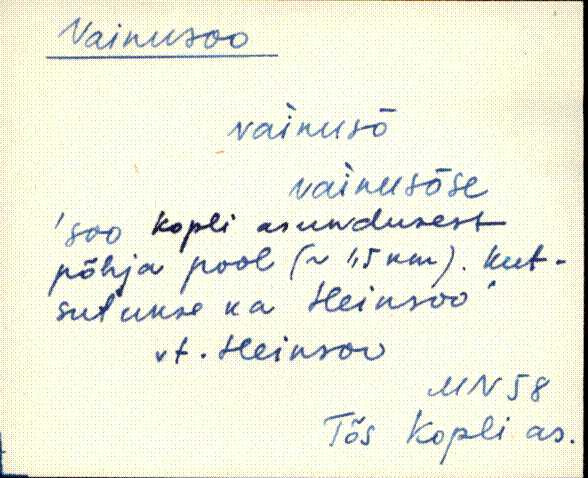 Vainusoo
vaìnusō
vaìnusōse
'soo Kopli asundusest
põhja pool (~ 1,5 km). Kut-
sutakse ka Heinsoo'
vt. Heinsoo
MN 58
Tõs Kopli as.